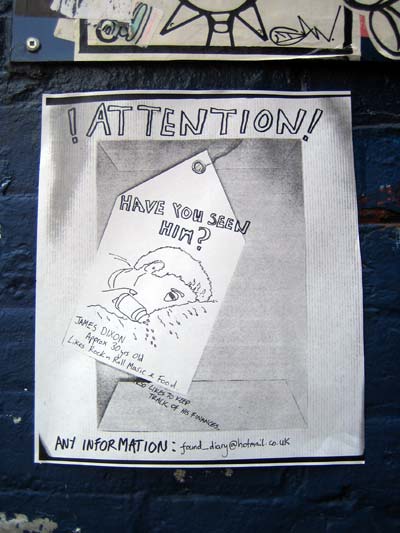 ! ATTENTION!
HAVE YOU SEEN
HIM?
JAMES DIXON
Approx 30 yrs old
Likes Rock n Roll Music & Food
ALSO LIKES TO KEEP
TRACK OF HIS FINANCES.
ANY INFORMATION: found_diary@hotmail.co.uk